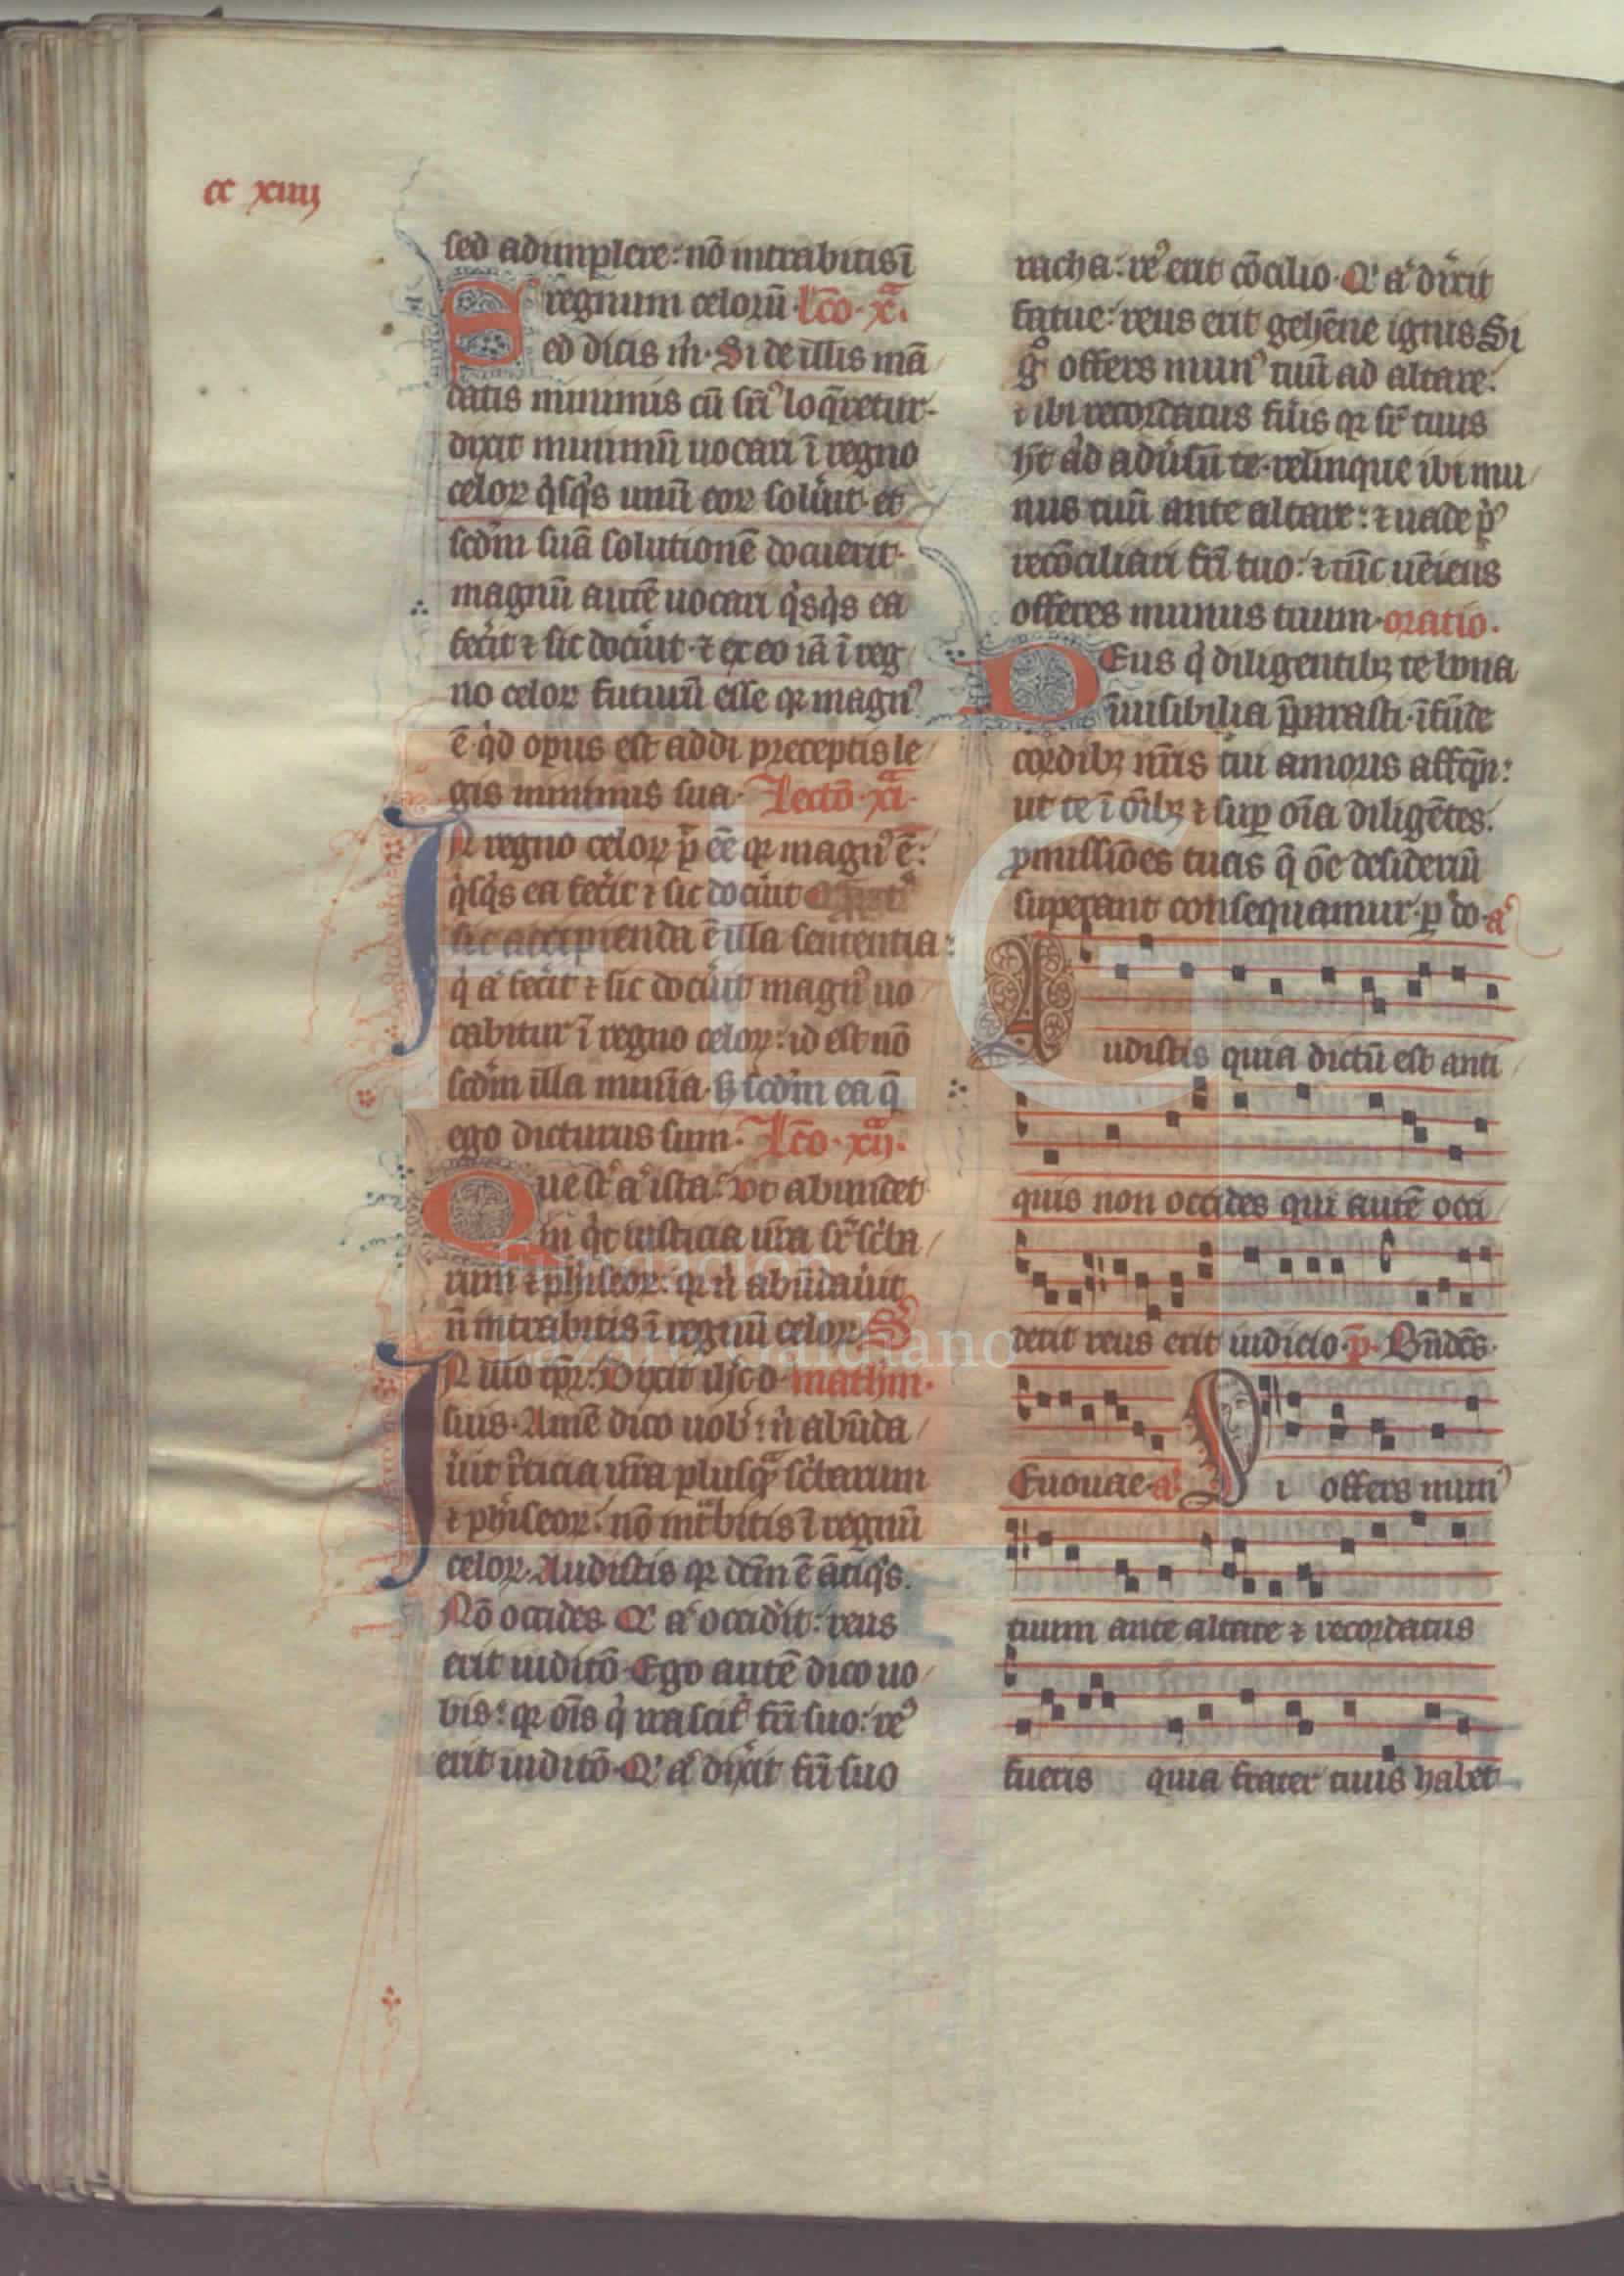 cc xiiij
sed adimplere: nō intrabitis ī
regnum celorū. lc̄o. xa.
Sed dicis m̄. Si de illis mā
datis minimis cū sr̄i9 loq̄retur.
dixit minimū uocari ī regno
celoꝝ q̇sq̇s unū eoꝝ solūit. et
scdm suā solutionē docuerit.
magnū autē uocari q̇sq̇s ea
fecit ⁊ sic docūit. ⁊ ex eo iā ī reg
no celoꝝ futurū esse qꝛ magn9
ē. qd opus est addi preceptis le
gis minimis sua. Lectō. xia.
IN regno celoꝝ p̄ ēē qꝛ magn9 ē:
q̇sq̇s ea fecit ⁊ sic docūit
sic accipienda ē illa sententia:
q̇ a fecit ⁊ sic docūit magn9 uo
cabitur ī regno celoꝝ: id est nō
scdm illa minīa. sꝫ scdm ea q̄
ego dicturus sum. Lc̄o. xij.
Que st̄ a ista: ut abundet
in q̇t iusticia ūra sr̄ sc̄ba
rum ⁊ phiseoꝝ: qꝛ n̄ abūdaūit
n̄ intrabitis ī regnū celoꝝ.
IN illo tp̄r. Dixit ih̄c d. mathm.
suis. Amē dico uob: n̄ abūda
ūit iticia ūra plusq̄ sc̄barum
⁊ phiseoꝝ: nō intbitis ī regnū
celoꝝ. Audistis qꝛ dcm ē ātiq̇s.
Nō occides. Q a occidit: reus
erit iuditō. Ego autē dico uo
bis: qꝛ oīs q̇ irascit fri suo: re9
erit iuditō. Q a dixit fri suo
racha: re9 erit cōcilio. Q a dixit
fatue: reus erit gehēne ignis Si
g̊ offers mun9 tuū ad altare:
⁊ ibi recordatus fūis qꝛ fr̄ tuus
ht ad adūsū te. relinque ibi mu
nus tuū ante altare: ⁊ uade p9
recōciliari fri tuo: ⁊ tūc uēiens
offeres munus tuum. oratio.
DEus q̇ diligentibꝫ te bona
īuisibilia pparasti. īfūde
cordibꝫ nr̄is tui amoris affc̄m:
ut te ī oībꝫ ⁊ sup oīa diligētes.
pmissiōes tuas q̄ ōe desideriū
superant consequamur. p do. a
Audistis quia dictū est anti
quis non occides qui autē occi
derit reus erit iudicio. p̄. Bn̄dc̄s.
Euouae. a Si offers mun9
tuum ante altare ⁊ recordatus
fueris quia frater tuus habet
FLG
Fundación
Lázaro Galdiano